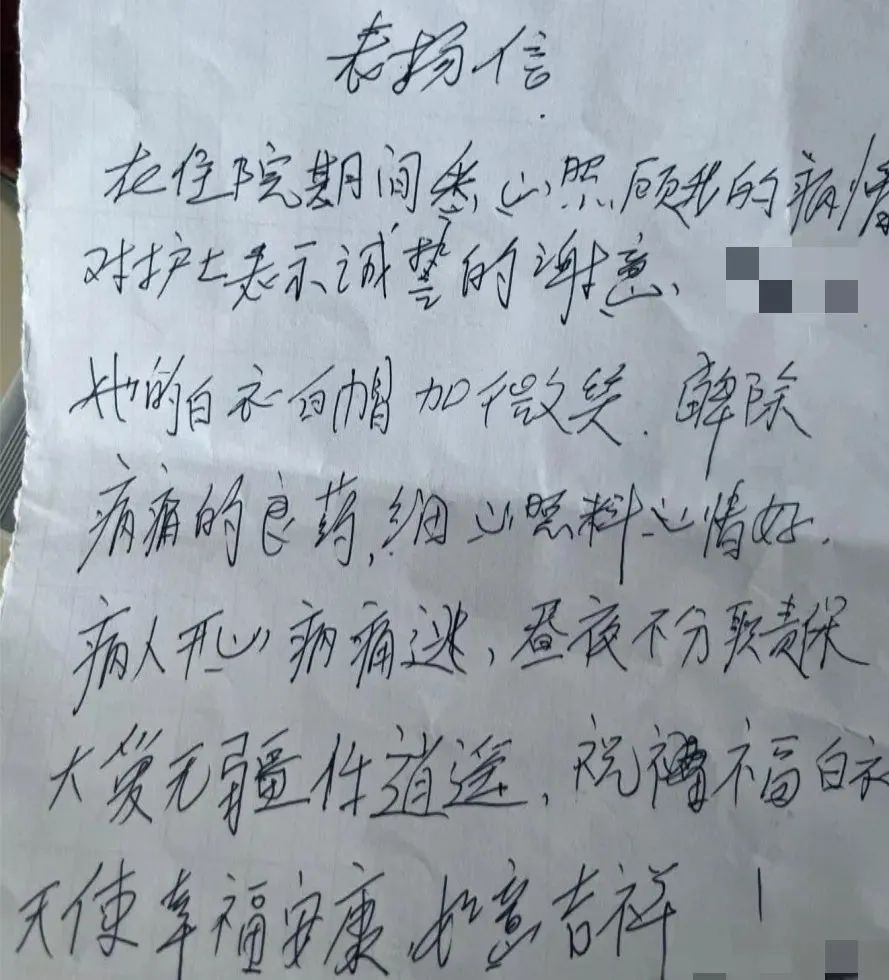 表扬信
在住院期间悉心照顾我的病情
对护士表示诚挚的谢意、
她的白衣白帽加微笑.解除
病痛的良药,细心照料心情好.
病人开心病痛逃,昼夜不分职责保
大爱无疆伴逍遥,祝福白衣
天使幸福安康,如意吉祥!